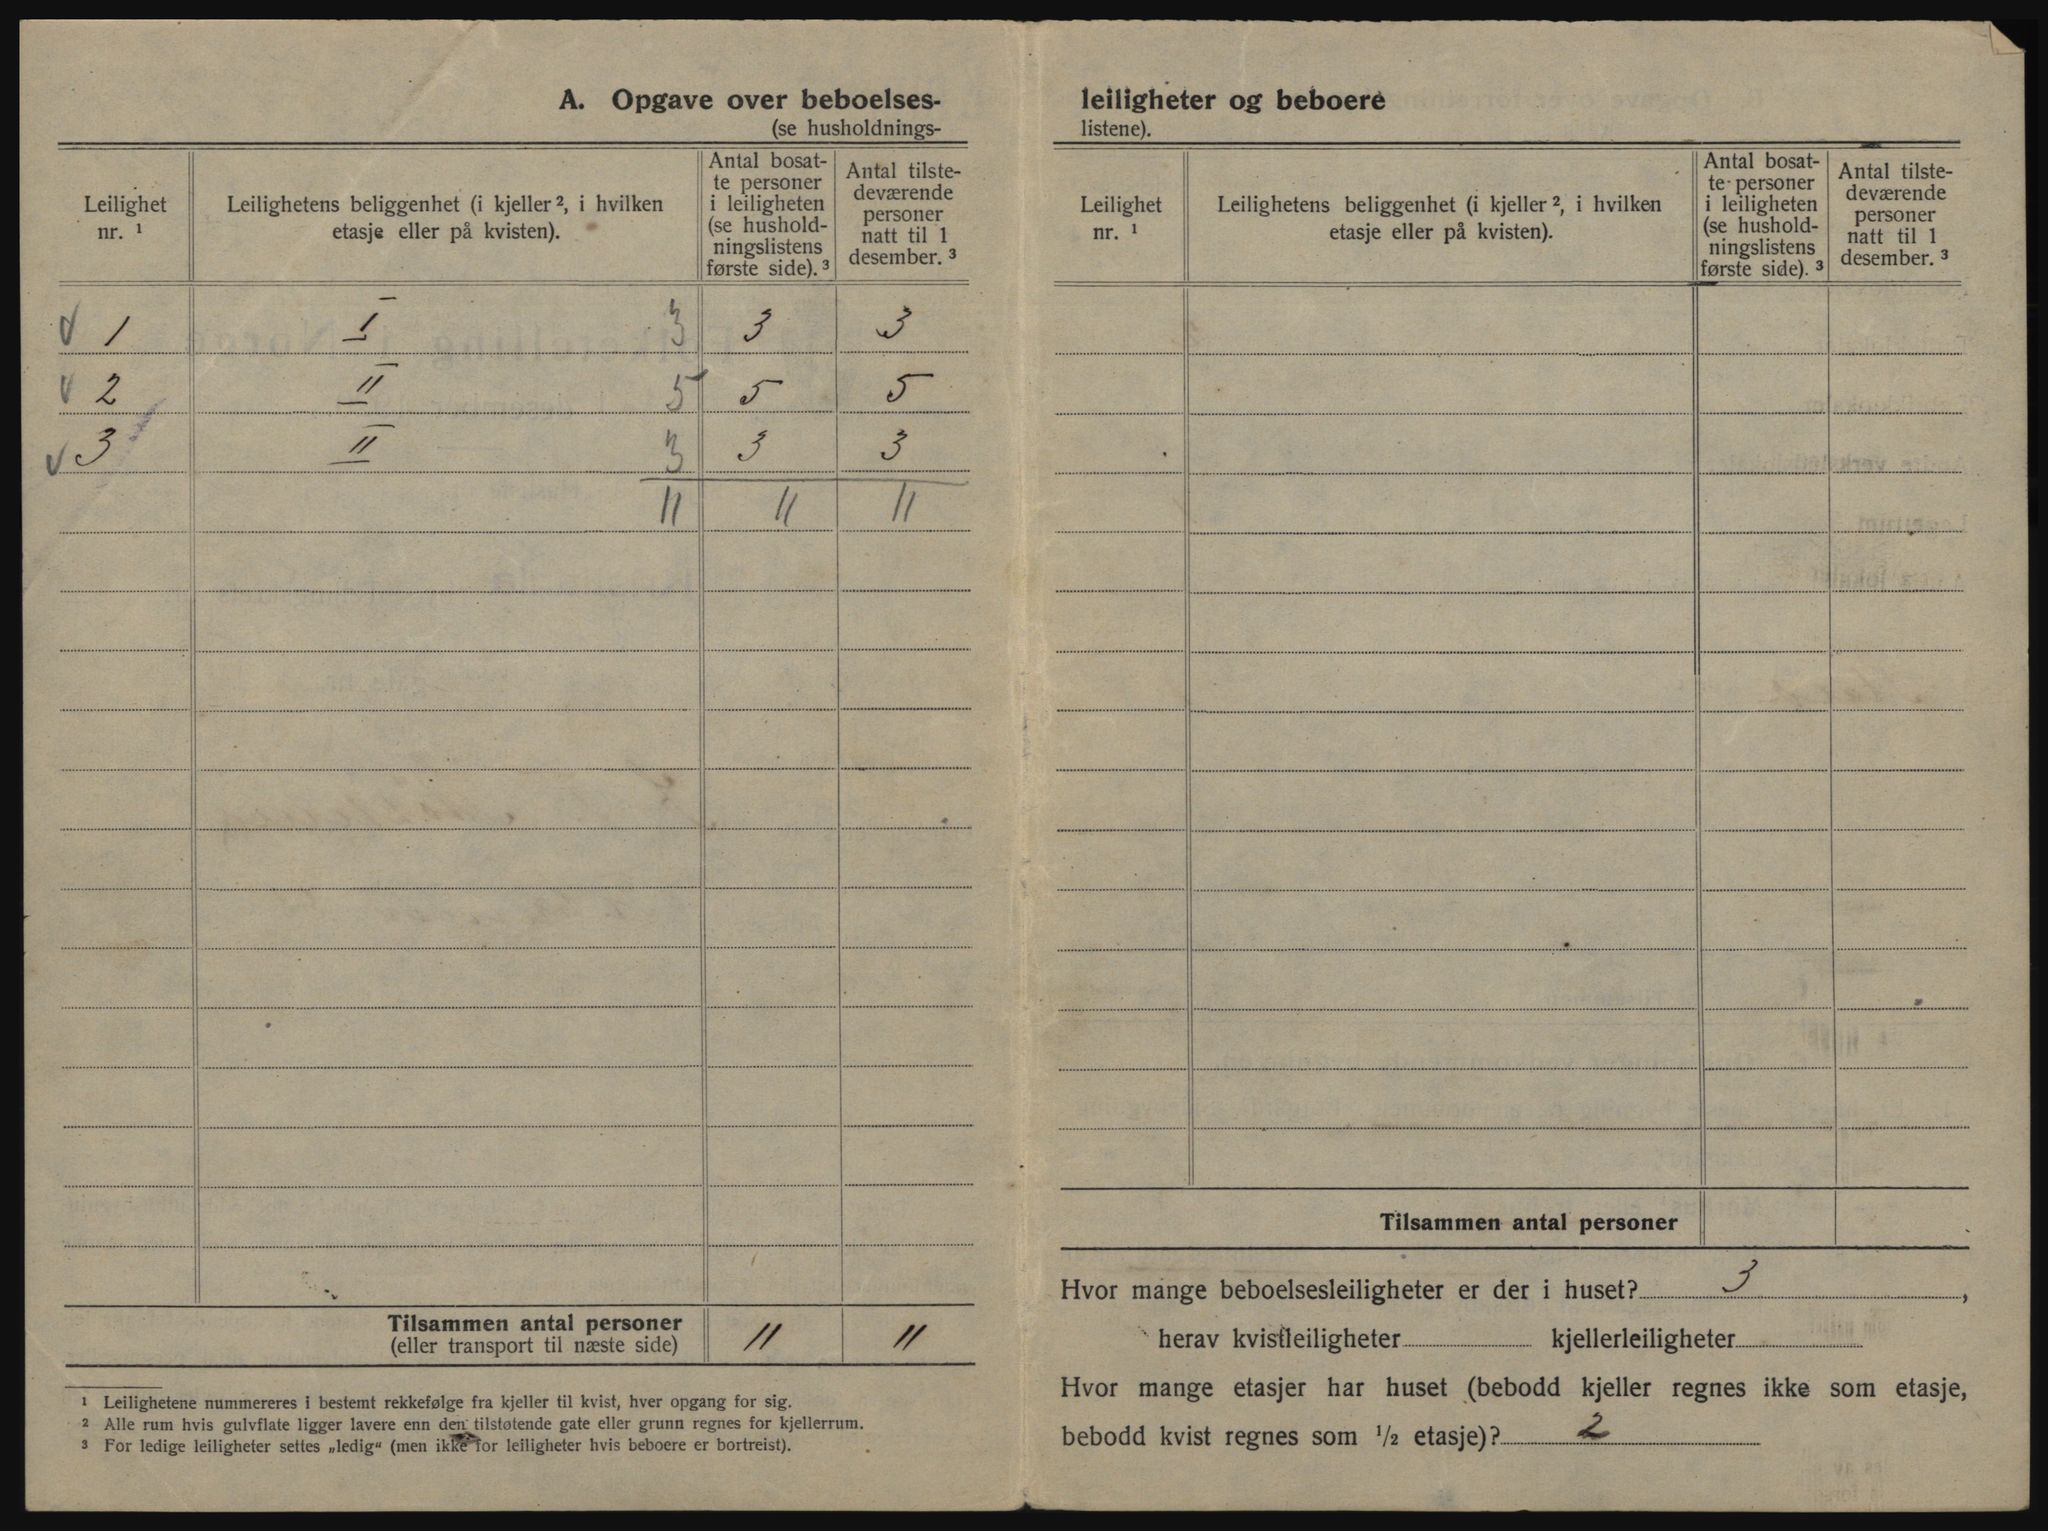 A. Opgave over beboelses-
(se husholdnings-
Leilighet
nr. ¹
Leilighetens beliggenhet (i kjeller ², i hvilken
etasje eller på kvisten).
Antal bosat-
te personer
i leiligheten
(se hushold-
ningslistens
første side). ³
Antal tilste-
deværende
personer
natt til 1
desember. ³
1 I 3 3 3
2 II 5 5 5
3 II 3 3 3
11 11 11
Tilsammen antal personer 11 11
(eller transport til næste side)
¹ Leilighetene nummereres i bestemt rekkefølge fra kjeller til kvist, hver opgang for sig.
² Alle rum hvis gulvflate ligger lavere enn den tilstøtende gate eller grunn regnes for kjellerrum.
³ For ledige leiligheter settes „ledig“ (men ikke for leiligheter hvis beboere er bortreist).
leiligheter og beboere
listene).
Leilighet
nr. ¹
Leilighetens beliggenhet (i kjeller ², i hvilken
etasje eller på kvisten).
Antal bosat-
te personer
i leiligheten
(se hushold-
ningslistens
første side). ³
Antal tilste-
deværende
personer
natt til 1
desember. ³
Tilsammen antal personer
Hvor mange beboelsesleiligheter er der i huset? 3,
herav kvistleiligheter kjellerleiligheter
Hvor mange etasjer har huset (bebodd kjeller regnes ikke som etasje,
bebodd kvist regnes som ½ etasje)? 2